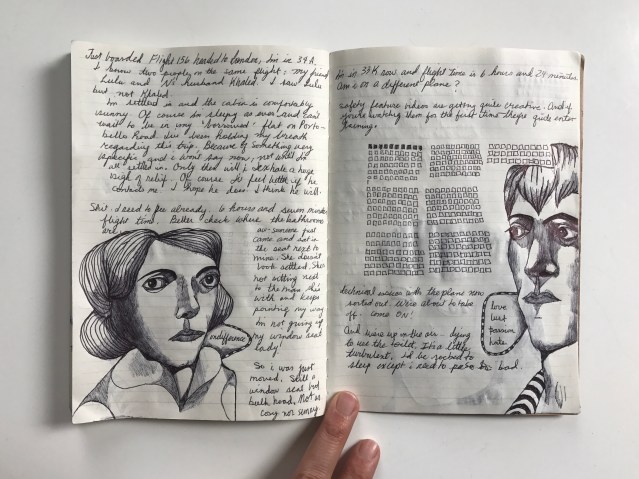 Just boarded Flight 156 headed to London, I'm in 39 A.
I know two people on the same flight: my friend
Lulu and his husband Khaled. I saw Lulu
but not Khalid.
I'm settled in and the cabin is comfortably
sunny. Of course I'm sleepy as ever and can't
wait to be in my 'borrowed' flat on Porto-
bello Road. I've been holding my breath
regarding this trip. Because of something very
specific and I won't say now, not until I'm
all settled in. Only then will I exhale a huge
sigh of relief. Of course I'd feel better if he
contacts me. I hope he does. I think he will.
Shit. I need to pee already. 6 hours and seven minutes
flight time. Better check where the bathrooms
are.
so someone just
came and sat in
the seat next to
mine. She doesn't
look settled. She's
not sitting next
to the man she's
with and keeps
pointing my way
I'm not giving up
my window seat
lady!
So i was just
moved. Still a
window seat but
bulk head. Not as
cosy nor sunny.
indifference
I'm in 33K now and flight time is 6 hours and 24 minutes
Am i on a different plane?
Safety feature videos are getting quite creative. And if
you're watching them for the first time they're quite enter-
taining.
technical issues with the plane now
sorted out. We're about to take
off. Come ON!
And we're up in the air - dying
to use the toilet. It's a little
turbulent. i'd be rocked to
sleep except i need to pee so bad.
love
lust
passion
hate